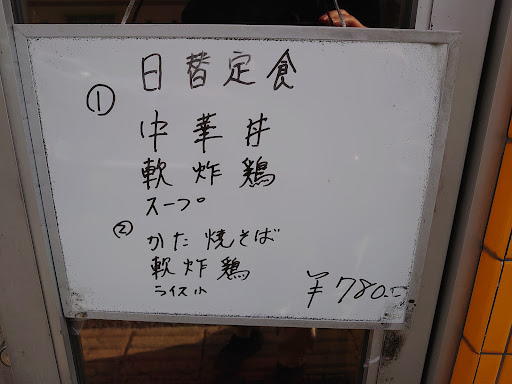 日替定食
① 中華丼
軟炸鶏
スープ
② かた焼そば
軟炸鶏
ライス小
¥780.-